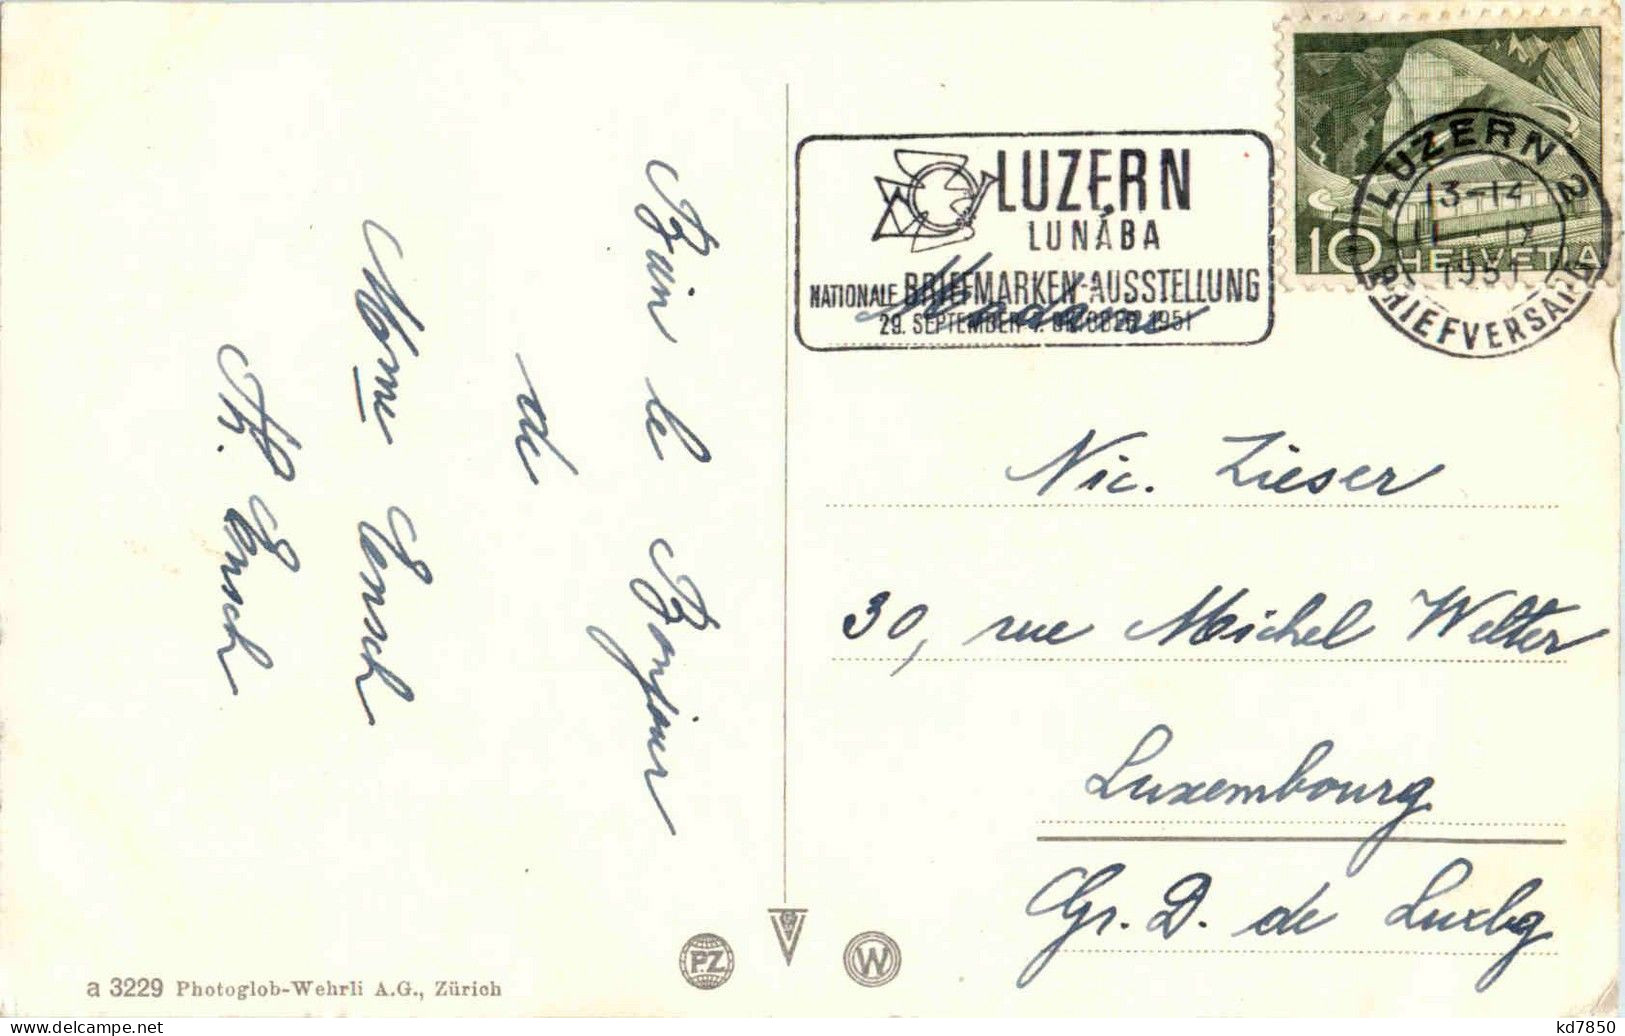 Bien le Bonjour
de
Mme Ensch
N. Ensch
LUZERN
LUNABA
NATIONALE BRIEFMARKEN-AUSSTELLUNG
29. SEPTEMBER-7. OKTOBER 1951
10 HELVETIA
LUZERN 2
13-14
IX
1951
BRIEFVERSAND
Madame
Nic. Zieser
30, rue Michel Welter
Luxembourg
Gr. D. de Luxbg
a 3229 Photoglob-Wehrli A.G., Zürich
P.Z
W
kd7850